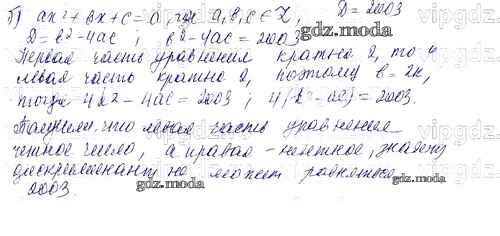 б) ax² + вx + c = 0, где a, в, c ∈ Z, D = 2003
D = в² - 4ac ; в² - 4ac = 2003
Первая часть уравнения кратна 2, то и
левая часть кратна 2, поэтому в = 2к,
тогда 4к² - 4ac = 2003 ; 4(к² - ac) = 2003.
Получили, что левая часть уравнения
четное число, а правая - нечетное, значит
дискриминант не может равняться
2003.
gdz.moda
gdz.moda
gdz.moda
gdz.moda
vipgdz
vipgdz
vipgdz